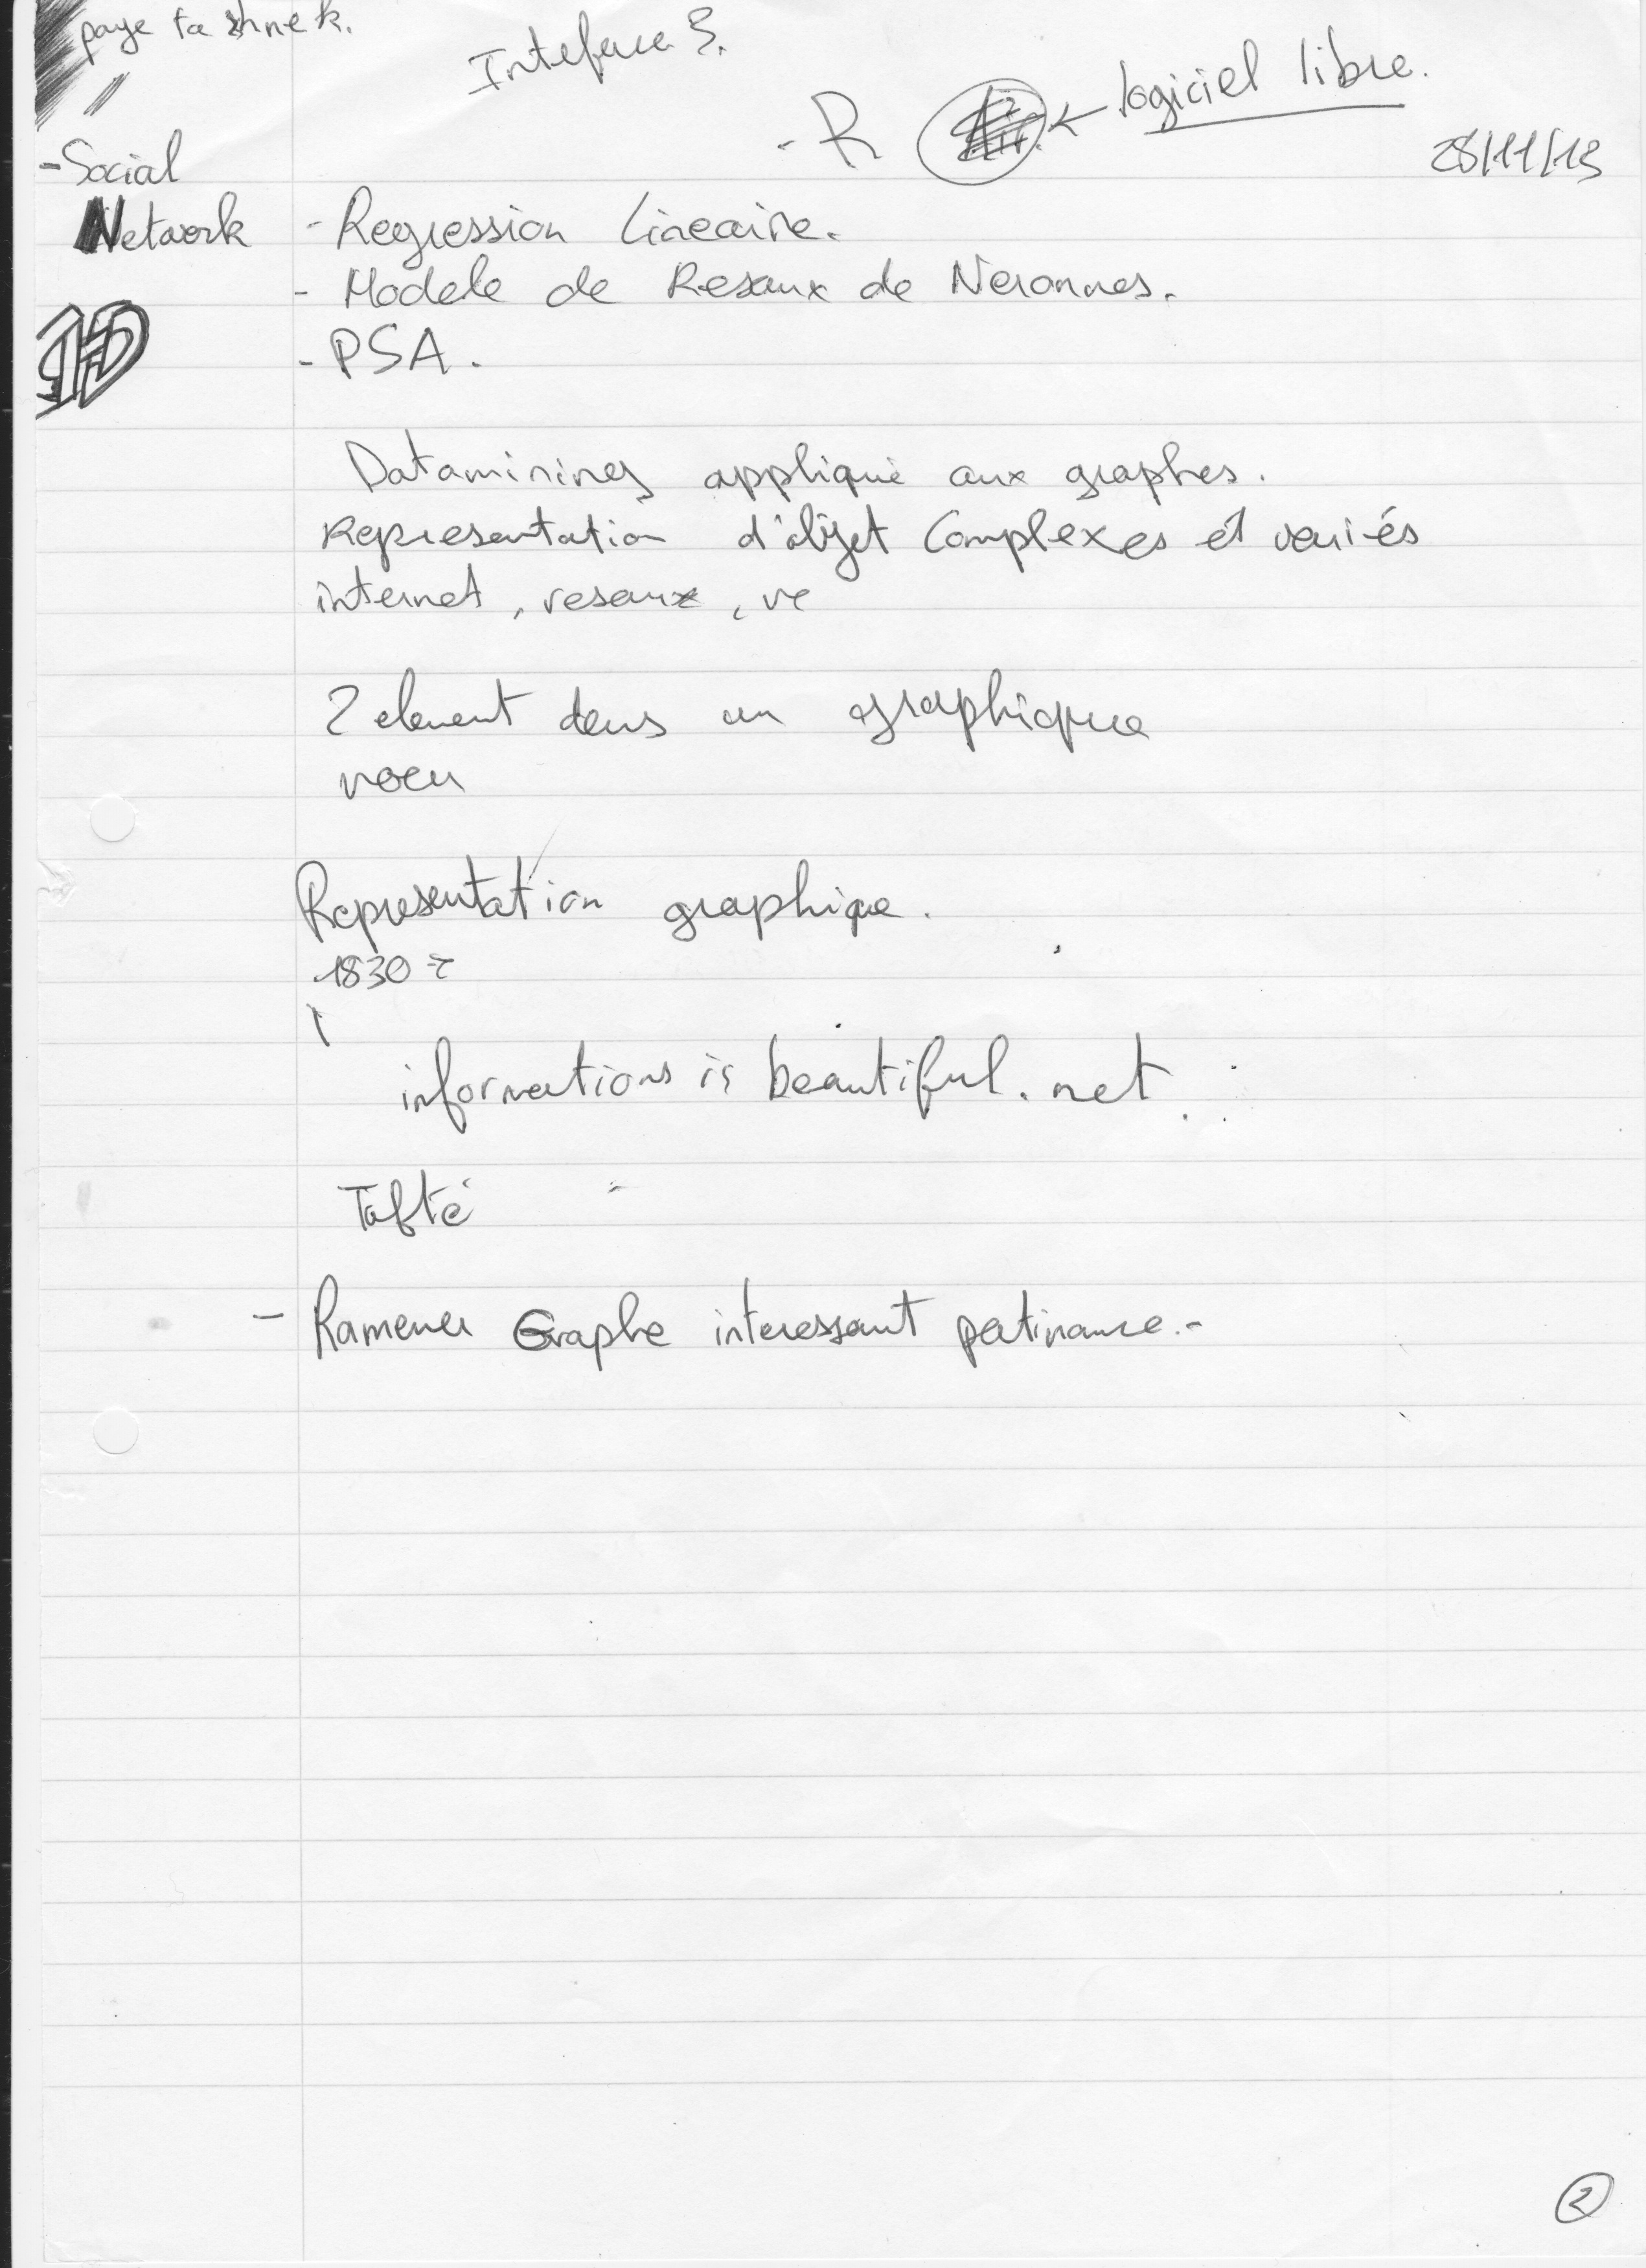 paye ta shnek.
Inteface 3.
- R ← logiciel libre.
28/11/13
- Social
Network
- Regression Lineaire.
- Modele de Resaux de Neronnes.
- PSA.
Datamining appliqué aux graphes.
Representation d'objet Complexes et variés
internet, resaux, ve
2 element dans un graphique
noeu
Representation graphique.
1830 =
informations is beautiful.net
Tafté
- Ramener Graphe interessant pertinance.-
2